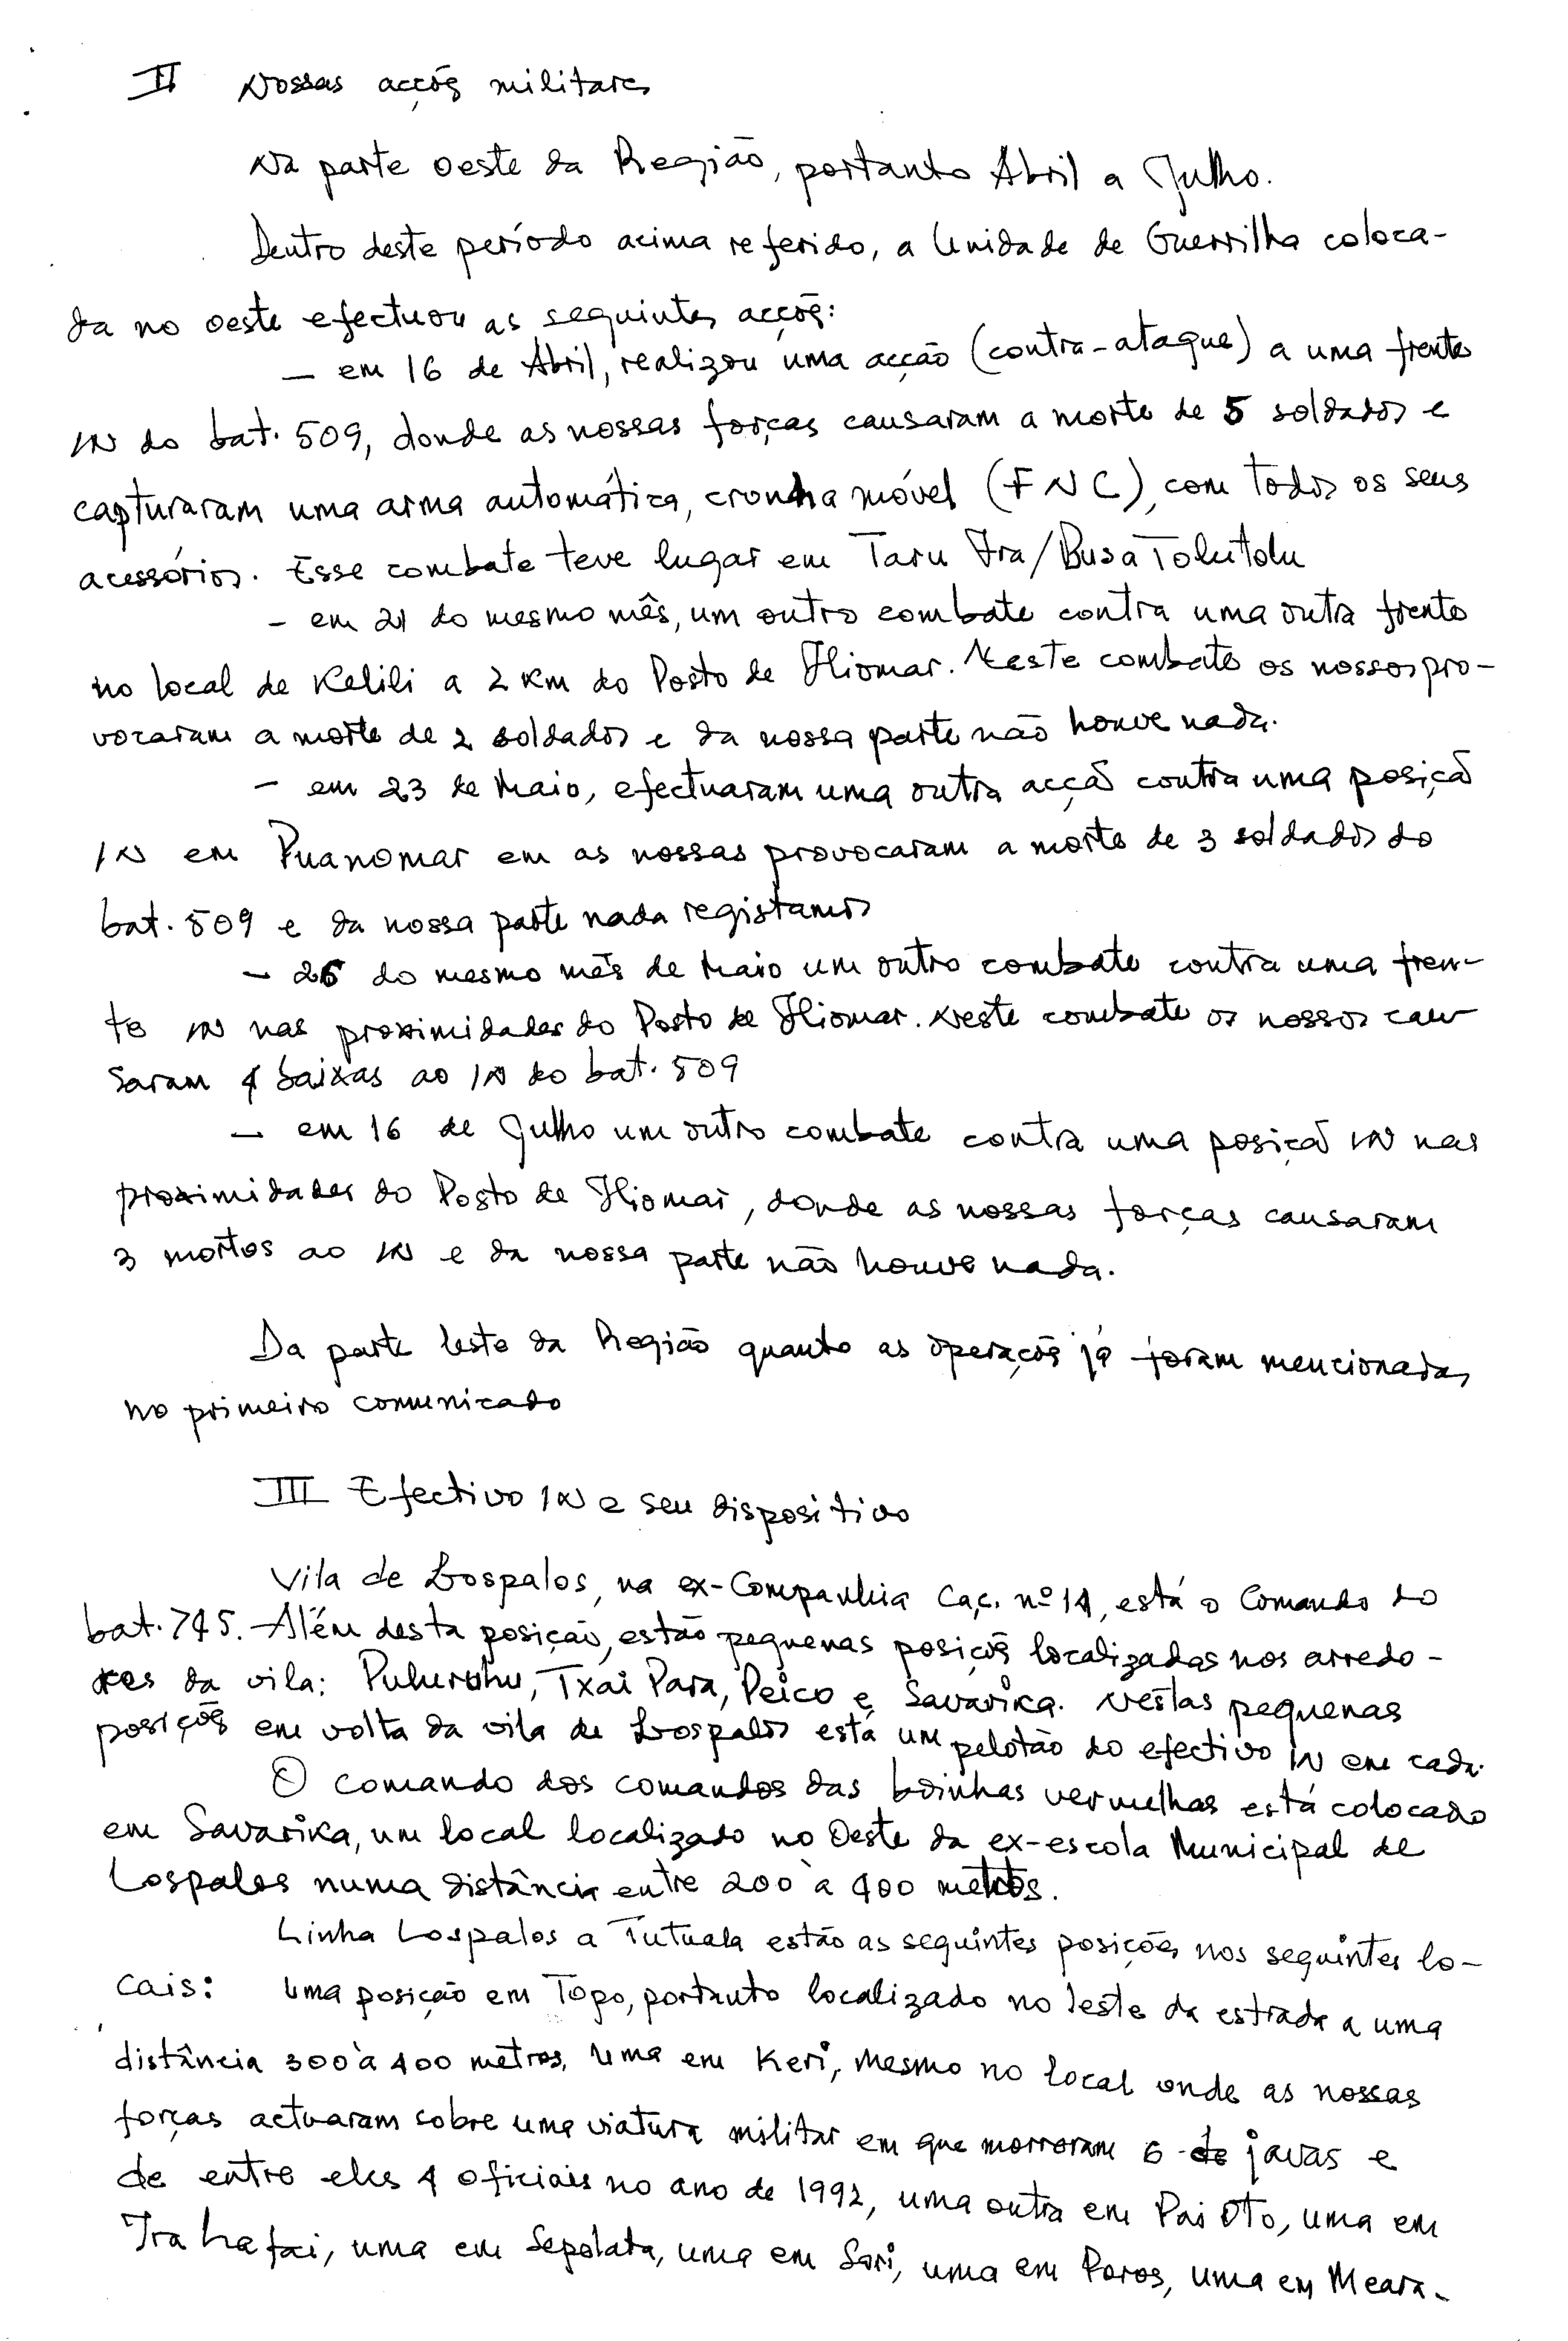 II Nossas acções militares
Na parte oeste da Região, portanto Abril a Julho.
Dentro deste período acima referido, a Unidade de Guerrilha coloca-
da no oeste efectuou as seguintes acções:
– em 16 de Abril, realizou uma acção (contra-ataque) a uma frente
IN do bat. 509, donde as nossas forças causaram a morte de 5 soldados e
capturaram uma arma automática, cronha móvel (FNC), com todos os seus
acessórios. Esse combate teve lugar em Taru Ira/Busa Tolutolu
– em 21 do mesmo mês, um outro combate contra uma outra frente
no local de Kelili a 2 Km do Posto de Iliomar. Neste combate os nossos pro-
vocaram a morte de 2 soldados e da nossa parte não houve nada.
– em 23 de Maio, efectuaram uma outra acção contra uma posição
IN em Puanomar em as nossas provocaram a morte de 3 soldados do
bat. 509 e da nossa parte nada registamos
– 26 do mesmo mês de Maio um outro combate contra uma fren-
te IN nas proximidades do Posto de Iliomar. Neste combate os nossos cau-
saram 4 baixas ao IN do bat. 509
– em 16 de Julho um outro combate contra uma posição IN nas
proximidades do Posto de Iliomar, donde as nossas forças causaram
3 mortos ao IN e da nossa parte não houve nada.
Da parte leste da Região quanto as operações já foram mencionadas
no primeiro comunicado
III Efectivo IN e seu dispositivo
Vila de Lospalos, na ex-Companhia Caç. nº 14, está o Comando do
bat. 745. Além desta posição, estão pequenas posições localizadas nos arredo-
res da vila: Puhurohu, Txai Para, Peico e Savarika. Nestas pequenas
posições em volta da vila de Lospalos está um pelotão do efectivo IN em cada.
O comando dos comandos das boinhas vermelhas está colocado
em Savarika, um local localizado no Oeste da ex-escola Municipal de
Lospalos numa distância entre 200 à 400 metros.
Linha Lospalos a Tutuala estão as seguintes posições nos seguintes lo-
cais: Uma posição em Topo, portanto localizado no leste da estrada a uma
distância 300 à 400 metros, uma em Keri, mesmo no local onde as nossas
forças actuaram sobre uma viatura militar em que morreram 6 de javas e
de entre eles 4 oficiais no ano de 1992, uma outra em Pai Oto, uma em
Ira Hafai, uma em Sepolata, uma em Sori, uma em Poros, uma em Meara-